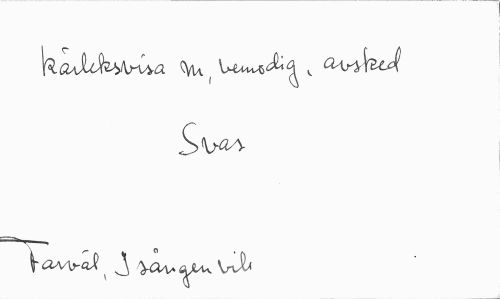 Kärleksvisa m, vemodig, avsked
Svas
Farväl, I sången vill